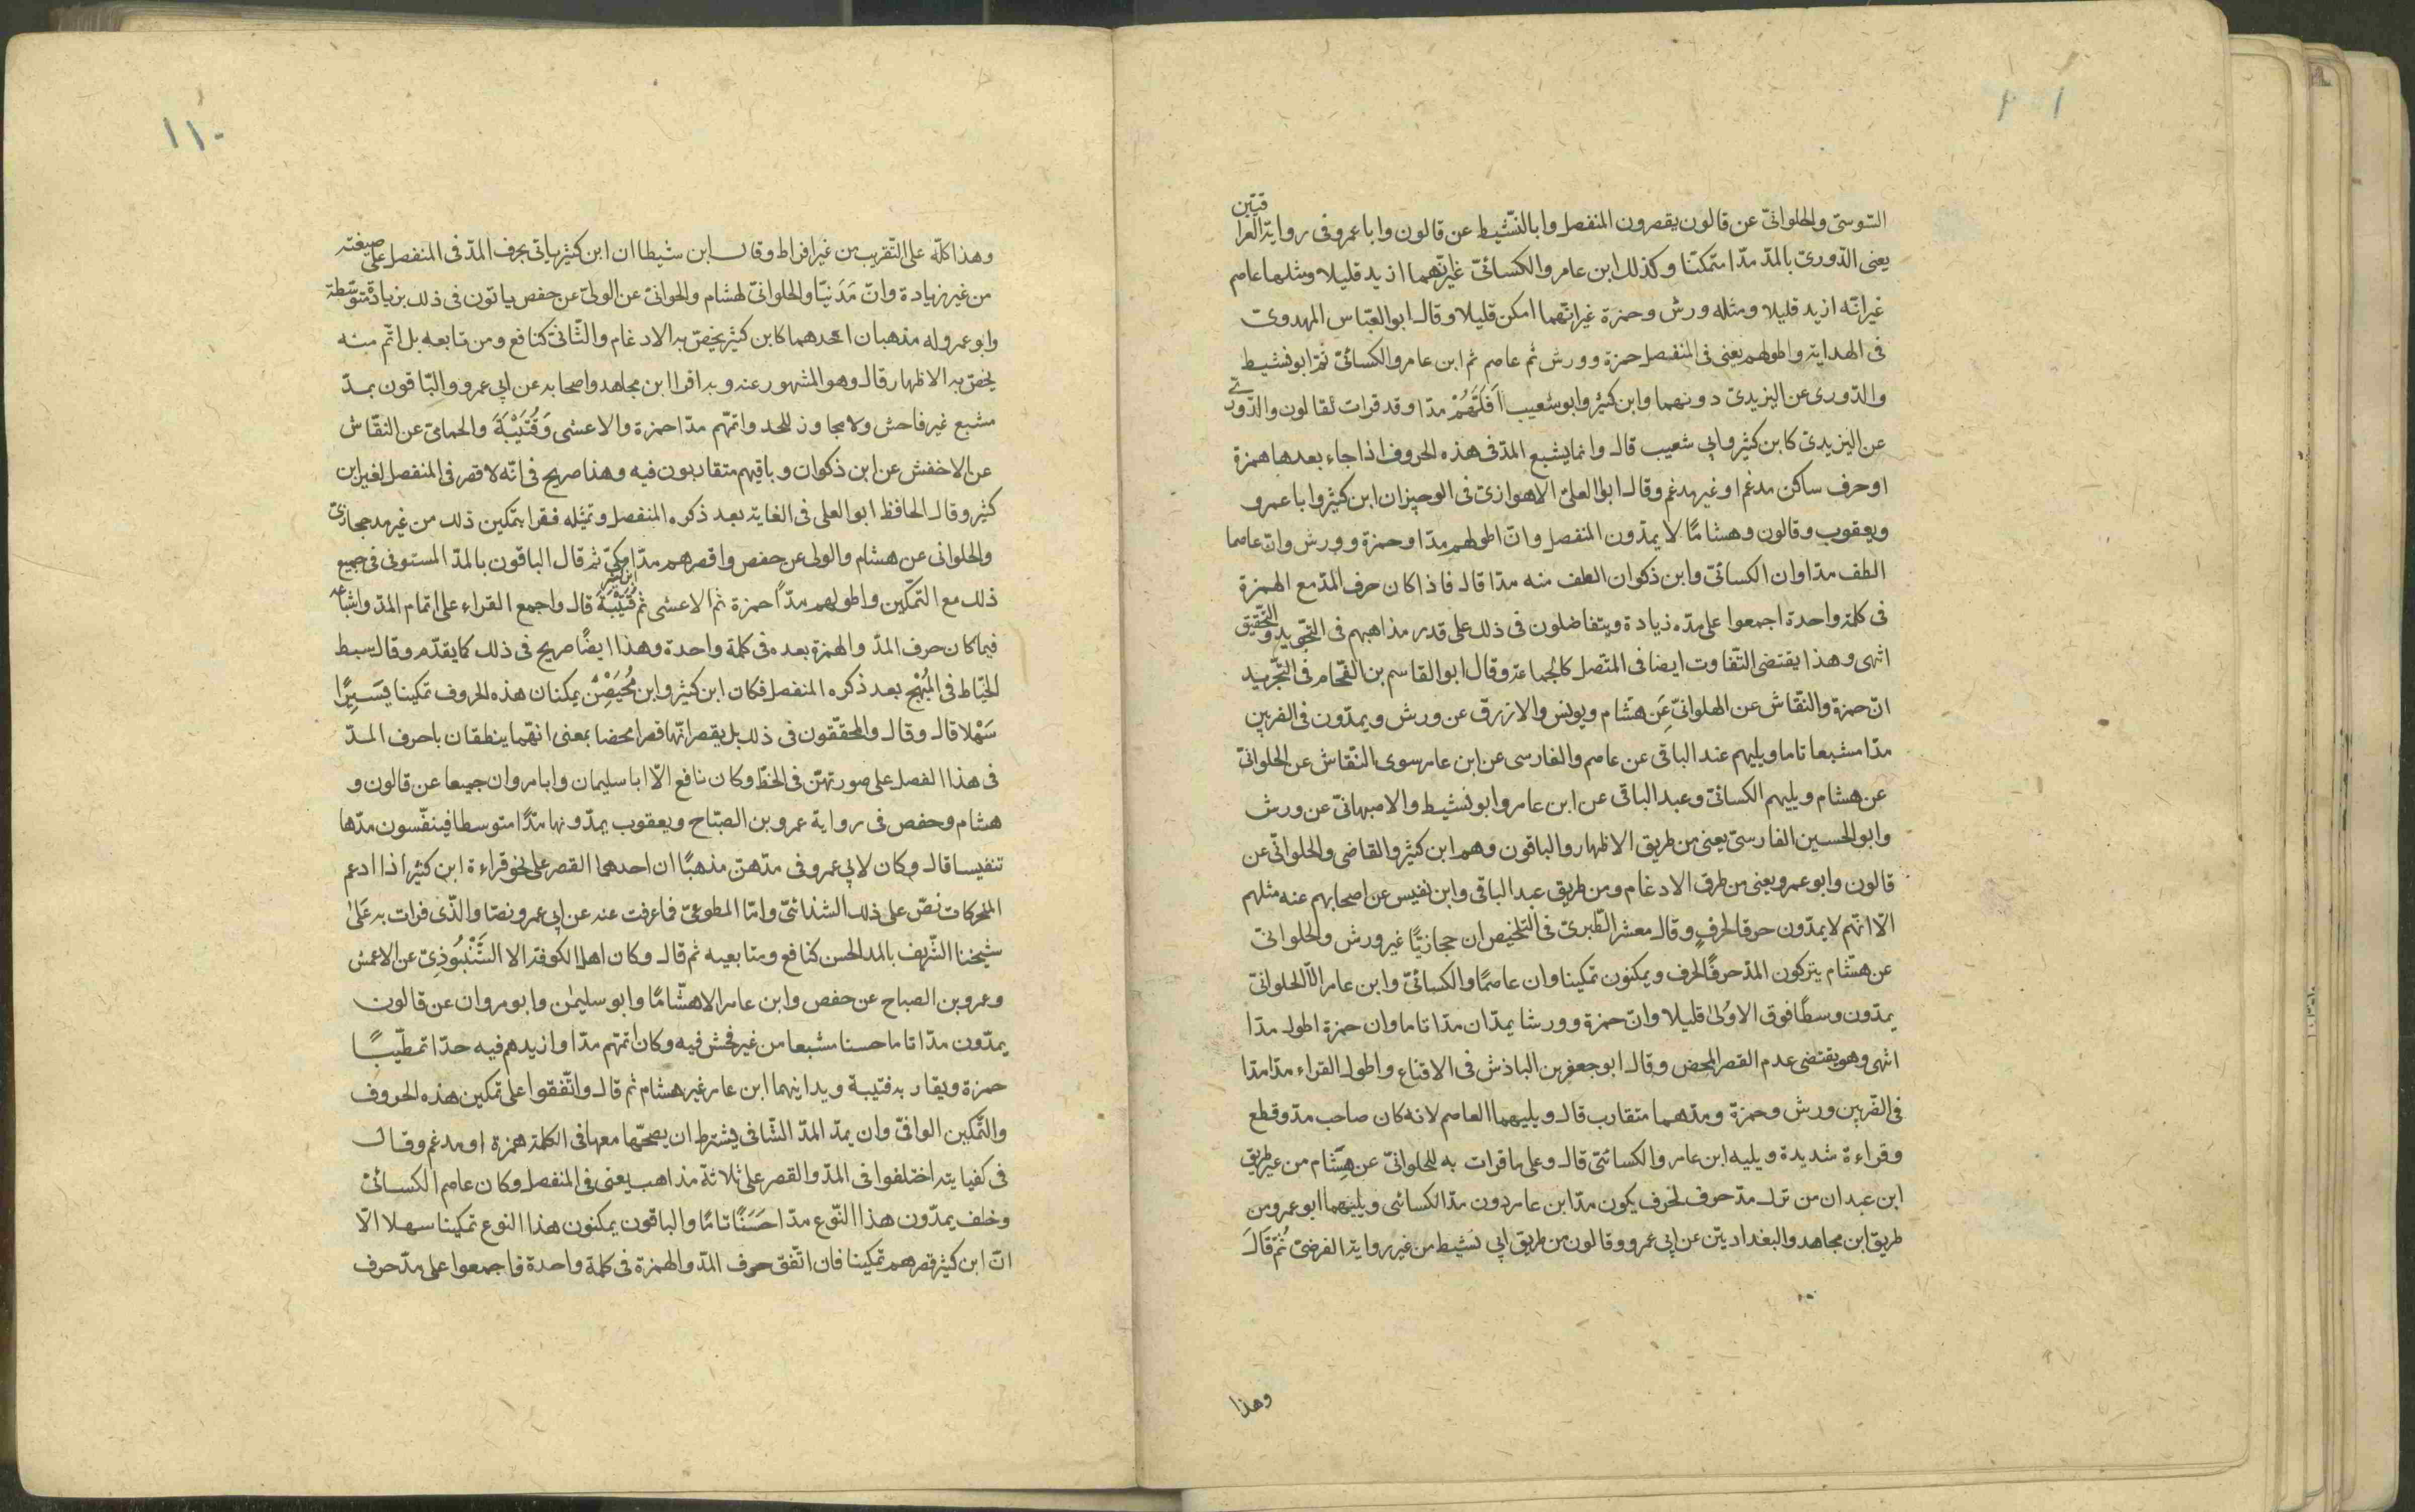 السّوسىّ والحلوانىّ عن قالون يقصرون المنفصل وابا لنّشيط عن قالون وابا عمرو فى رواية العراقيّين
يعنى الدّورىّ بالمدّ مدّا متمكنّا وكذلك ابن عامر والكسائىّ غير انّهما ازيد قليلا ومثلها عاصم
غير انّه ازيد قليلا ومثله ورش وحمزة غير انّهما امكن قليلا وقال ابو العبّاس المهدوىّ
فى الهداية واطولهم يعنى فى المنفصل حمزة وورش ثم عاصم ثم ابن عامر والكسائىّ ثمّ ابو نشيط
والدّورى عن اليزيدىّ دونهما وابن كثير وابو شعيب اقلهم مدّا وقد قرات لقالون والدّورىّ
عن اليزيدىّ كابن كثير وابى شعيب قال وانما يشبع المدّ فى هذه الحروف اذا جاء بعدها همزة
او حرف ساكن مدغم او غير مدغم وقال ابو العلىّ الاهوازىّ فى الوجيز ان ابن كثير وابا عمرو
ويعقوب وقالون وهشامًا لا يمدّون المنفصل وانّ اطولهم مدّا وحمزة وورش وانّ عاصما
الطف مدّا وان الكسائىّ وابن ذكوان الطف منه مدّا قال فاذا كان حرف المدّ مع الهمزة
فى كلمة واحدة اجمعوا على مدّه زيادة ويتفاضلون فى ذلك على قدر مذاهبهم فى التّجويد والتّحقيق
انتهى وهذا يقتضى التّفاوت ايضا فى المتّصل كالجماعة وقال ابو القاسم بن الفحّام فى التّجريد
انّ حمزة والنّقاش عن الهلوانىّ عن هشام ويونس والازرق عن ورش ويمدّون فى الضربين
مدّا مشبعا تاما ويليهم عند الباقى عن عاصم والفارسى عن ابن عامر سوى النّقاش عن الحلوانىّ
عن هشام ويليهم الكسائىّ وعبد الباقى عن ابن عامر وابو نشيط والاصبهانىّ عن ورش
وابو الحسين الفارسىّ يعنى من طريق الاظهار والباقون وهم ابن كثير والقاضى والحلوانّى عن
قالون وابو عمرو يعنى من طرق الادغام ومن طريق عبد الباقى وابن نفيس عن اصحابهم عنه مثلهم
الّا انّهم لا يمدّون حرفا لحرف وقال معشر الطّبرىّ فى التلخيص ان حجازيّا غير ورش والحلوانىّ
عن هشّام يتركون المدّ حرفًا لحرف ويمكنون تمكينا وان عاصمًا والكسائىّ وابن عامر الّا الحلوانىّ
يمدّون وسطًا فوق الاولىٰ قليلا وانّ حمزة وورشا يمدّان مدّا تاما وان حمزة اطول مدّا
انتهى وهو يقتضى عدم القصر المحض وقال ابو جعفر بن الباذش فى الاقناع واطول القراء مدّا مدّا
فى الضّربين ورش وحمزة ومدّهما متقارب قال ويليهما العاصم لانه كان صاحب مدّ وقطع
وقراءة شديدة ويليه ابن عامر والكسائىّ قال وعلى ما قرات به للحلوانىّ عن هشام من غير طريق
ابن عبدان من ترك مدّ حرف لحرف يكون مدّ ابن عامر دون مدّ الكسائى ويليهما ابو عمرو من
طريق ابن مجاهد والبغداديّن عن ابى عمرو وقالون من طريق ابى نشيط من غير رواية الفرضىّ ثُمّ قَالَ
وهذا
١١٠
وهذا كلّه على التّقريب من غير افراط وقال ابن شيطا ان ابن كثير ياتى بحرف المدّ فى المنفصل على صيغته
من غير زيادة وانّ مَدَنيّا والحلوانىّ لهشام والحوانىّ عن الولىّ عن حفص ياتون فى ذلك بزيادة متوسّطة
وابو عمرو له مذهبان احدهما كابن كثير يخصّ به الادغام والثّانىّ كنافع ومن تابعه بل اتّم منه
يخصّ به الاظهار قال وهو المشهور عنه وبه اقرا ابن مجاهد واصحابه عن ابى عمرو والبّاقون بمدّ
مشبع غير فاحش ولا مجاوز للحد واتمّهم مدّا حمزة والاعشى وَقُتَيْبَةَ والحمامىّ عن النقّاش
عن الاخفش عن ابن ذكوان وباقيهم متقاربون فيه وهذا صريح فى انّه لا قصر فى المنفصل لغير ابن
كثير وقال الحافظ ابو العلى فى الغاية بعد ذكره المنفصل وتمثيله فقرا بتمكين ذلك من غير مد حجازىّ
والحلوانى عن هشام والولى عن حفص واقصرهم مدّا مكىّ ثم قال الباقون بالمدّ المستوفى فى جميع
ذلك مع التّمكين واطولهم مدّاً حمزة ثم الاعشى ثم قُتَيْبَةَ قال واجمع القراء على اتمام المدّ واشباعه
فيما كان حرف المدّ والهمزة بعده فى كلمة واحدة وهذا ايضًا صريح فى ذلك كما يقدّم وقال سبط
الخيّاط فى المُبْهج بعد ذكره المنفصل فكان ابن كثير وابن مُحَيْصِنْ يمكنان هذه الحروف تمكينا يَسِيرًا
سَهْلا قال وقال والمحقّقون فى ذلك بل يقصرانّها قصرا محضا بمعنى انهّما ينطقان باحرف المدّ
فى هذا الفصل على صورتهنّ فى الخطّ وكان نافع الّا ابا سليمان وابا مروان جميعا عن قالون و
هشام وحفص فى رواية عمرو بن الصبّاح ويعقوب يمدّونها مدّا متوسطا فينفّسون مدّها
تنفيسا قال وكان لابى عمرو فى مدّهنّ مذهبًا ان احدهما القصر على نحو قراءة ابن كثير اذا ادغم
المتحركات نصّ على ذلك الشذائىّ وامّا المطوعىّ فما عرفت عنه عن ابى عمرو نصّا والّذى قرات به عَلىٰ
شيخنا الشّريف بالمد الحسن كنافع ومتابعيه ثم قال وكان اهل الكوفة الا الشَّنْبُوذِىّ عن الاعمش
وعمرو بن الصباح عن حفص وابن عامر الا هشّامًا وابو سليمٰن وابو مروان عن قالون
يمدّون مدّا تاما حسنا مشبعا من غير فحش فيه وكان اتمّهم مدّا وازيدهم فيه حدّا تمطيبًا
حمزة ويقاربه قتيبة ويدانيهما ابن عامر غير هشام ثم قال واتّفقوا على تمكين هذه الحروف
والتّمكين الوافىّ وان يمدّ المدّ الشّافى يشترط ان يصحبّها معها فى الكلمة همزة او مدغم وقال
فى كفيايته اختلفوا فى المدّ والقصر على ثلاثة مذاهب يعنى فى المنفصل وكان عاصم الكسائىّ
وخلف يمدّون هذا النّوع مدّا حَسَنًا تامًّا والباقون يمكنون هذا النوع تمكينا سهلا الّا
انّ ابن كثير قصرهم تمكينا فان اتّفق حرف المدّ والهمزة فى كلمة واحدة فاجمعوا على مدّ حرف